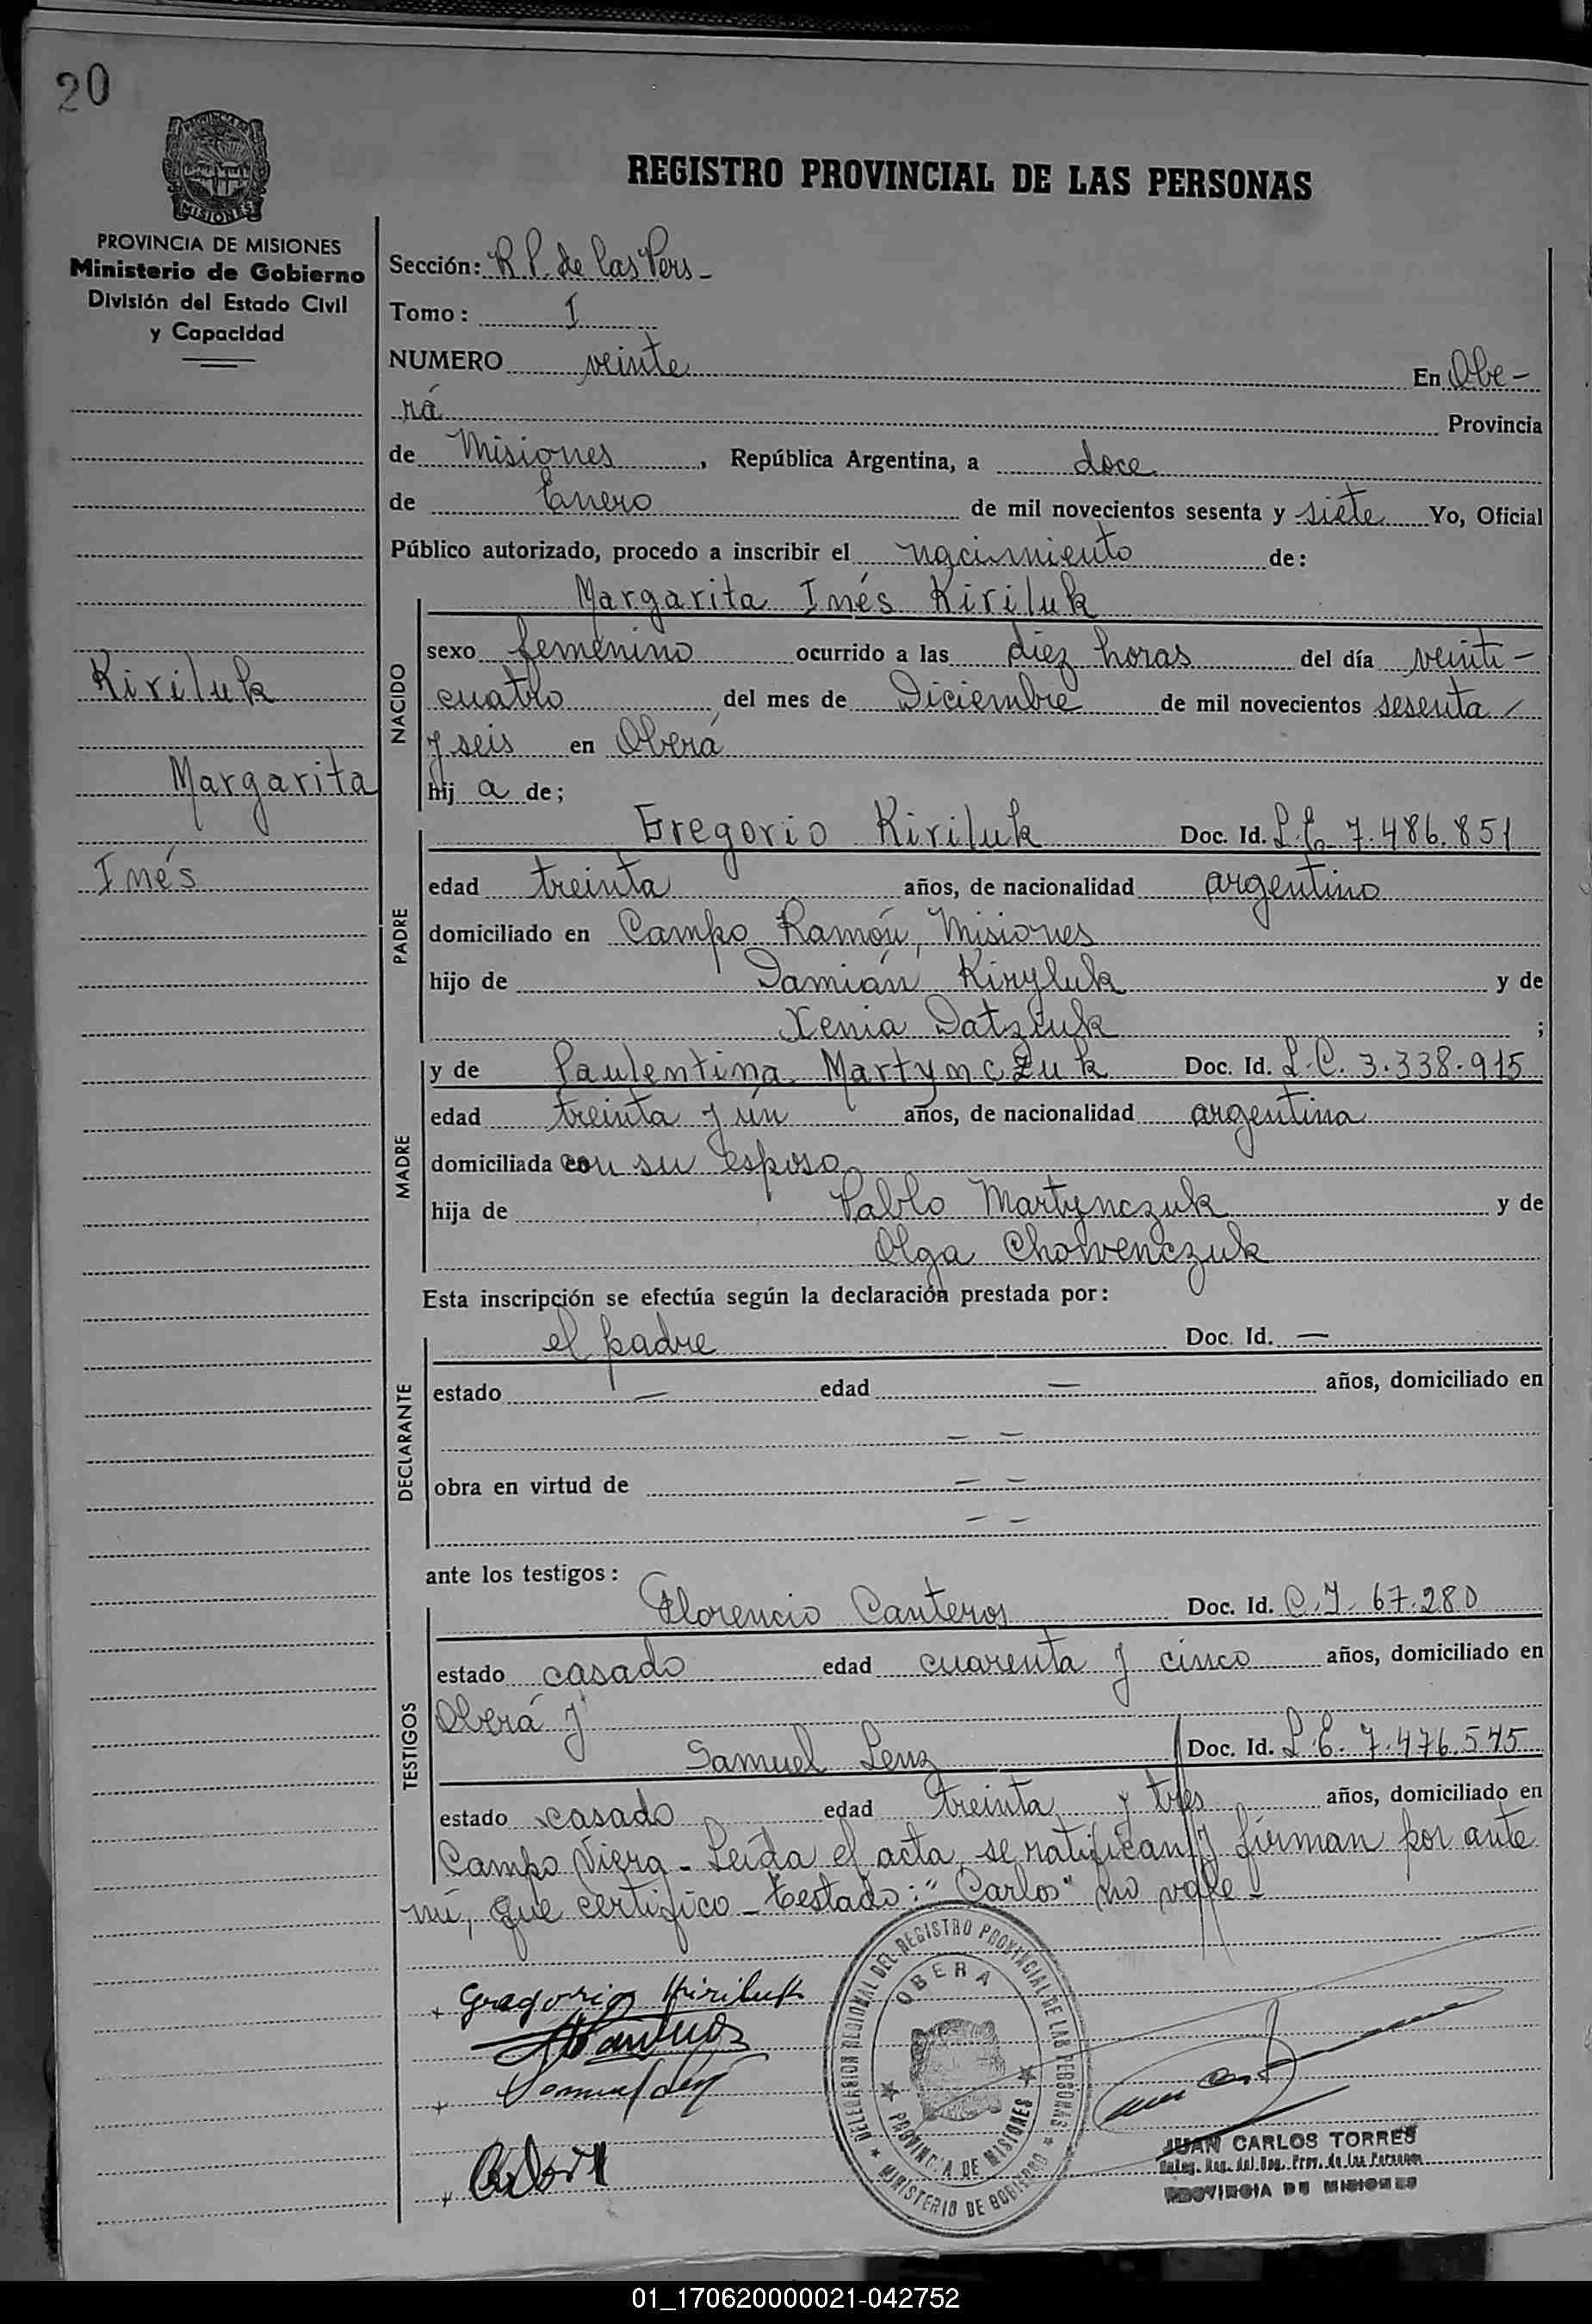 20
MISIONES
PROVINCIA DE MISIONES
Ministerio de Gobierno
División del Estado Civil
y Capacidad
Kiriluk
Margarita
Inés
REGISTRO PROVINCIAL DE LAS PERSONAS
Sección: R P. de las Pers -
Tomo: I
NUMERO veinte En Obe-
rá Provincia
de Misiones, República Argentina, a doce
de Enero de mil novecientos sesenta y siete Yo, Oficial
Público autorizado, procedo a inscribir el nacimiento de:
Margarita Inés Kiriluk
NACIDO
sexo femenino ocurrido a las diez horas del día veinti-
cuatro del mes de Diciembre de mil novecientos sesenta
y seis en Oberá
hij a de;
PADRE
Gregorio Kiriluk Doc. Id. L.E. 7.486.851
edad treinta años, de nacionalidad argentino
domiciliado en Campo Ramón, Misiones
hijo de Damián Kiryluk y de
Xenia Datziuk ;
MADRE
y de Paulentina Martynczuk Doc. Id. L.C. 3.338.915
edad treinta y un años, de nacionalidad argentina
domiciliada con su esposo
hija de Pablo Martynczuk y de
Olga Chowenczuk
Esta inscripción se efectúa según la declaración prestada por:
DECLARANTE
el padre Doc. Id. —
estado — edad — años, domiciliado en
— —
obra en virtud de — —
— —
ante los testigos:
TESTIGOS
Florencio Canteros Doc. Id. C.I. 67.280
estado casado edad cuarenta y cinco años, domiciliado en
Oberá y
Samuel Lenz Doc. Id. L.E. 7.476.575
estado casado edad treinta y tres años, domiciliado en
Campo Viera - Leída el acta, se ratifican y firman por ante
mí, que certifico - Testado: "Carlos" no vale -
Gregorio Kiriluk
Samuel Lenz
DELEGACION REGIONAL DEL REGISTRO PROVINCIAL DE LAS PERSONAS
OBERA
PROVINCIA DE MISIONES
MINISTERIO DE GOBIERNO
JUAN CARLOS TORRES
Deleg. Reg. del Reg. Prov. de las Personas
PROVINCIA DE MISIONES
01_170620000021-042752